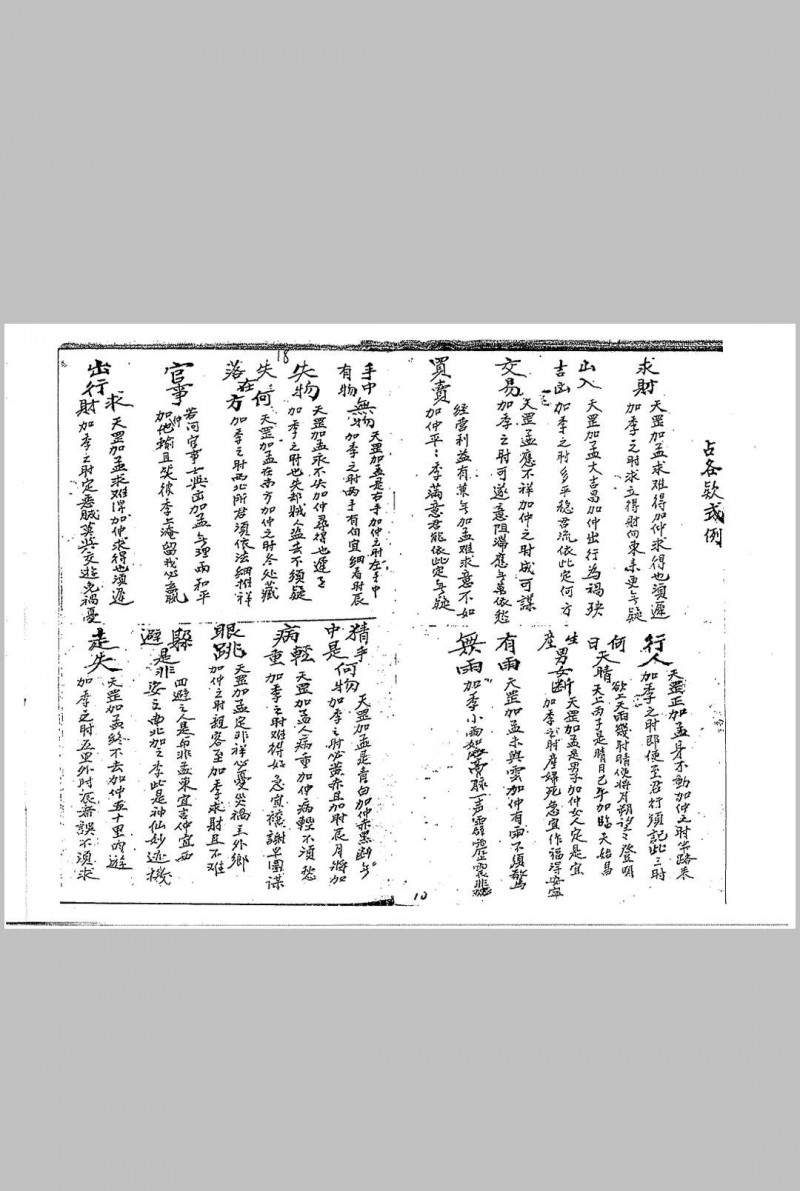 占各欵式例
求財
天罡加孟求難得加仲求得也須遲
加季之时求立得财向東未更無疑
出入吉凶
天罡加孟大吉昌加仲出行為禍殃
加季之时多平穩吉流依此定何方
交易
天罡孟應不祥加仲之时成可謀
加季之时可遂意阻滯應無萬依愁
買賣
經营利益有萬千加孟难求意不如
加仲平：季满意君能依此定無疑
行人
天罡正加孟身不動加仲之时半路来
加季之时即便至君行須記此三时
何日天晴
欲上天雨幾时晴使将月朔望之登明
天上丙子是晴日巳午加臨天始昌
生產男女断
天罡加孟是男子加仲女人定是宜
加季之时產婦死急宜作福得安寧
有雨
天罡加孟未興雲加仲有雨不須驚
無雨
加季小雨如一声霹靂震
手中有無物
天罡加孟是右手加仲之时左手中
加季之时两手有自宜細看时辰
失物
天罡加孟求不失加仲尋得也遲遲
加季之时也失却贼人盗去不須疑
失落在何方
天罡加孟在南方加仲之时冬处藏
加季之时西北所君須依法細推祥
官事
若问官事士與凶加孟無理兩和平
加仲他输且笑彼季上淹留我必羸
出行求財
天罡加孟求难得加仲求得也須遲
加季之时定惡贼莫與交遊免禍憂
猜手中是何物
天罡加孟是青白加仲赤黑断無
加季之时必黄赤且加时辰月将加
病輕重
天罡加孟人病重加仲病輕不須愁
加季之时难得好急宜禳謝早圖謀
眼跳
天罡加孟定非祥必憂災禍主外鄉
加仲之时親客至加季求財且不难
躲避是非
四避之人是與非孟東宜吉仲宜西
安之南北加之季此是神仙妙迹機
走失
天罡加孟終不去加仲五十里内遊
加季之时五里外时辰者誤不須求
18
10